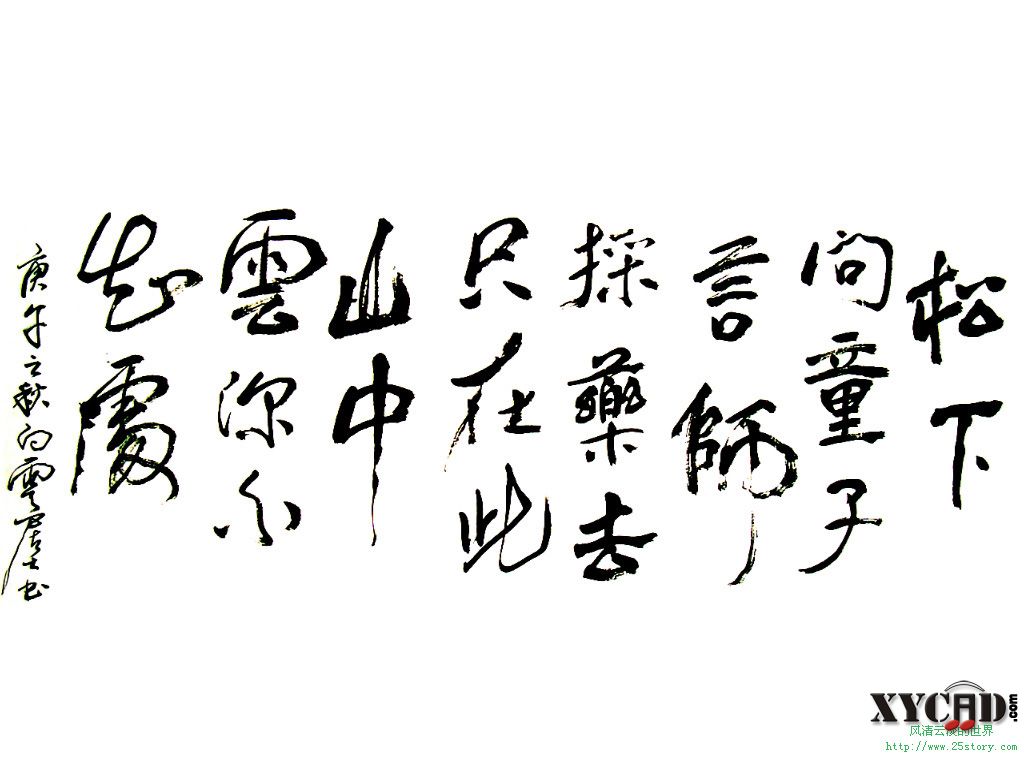 松下
問童子
言師
採藥去
只在此
山中
雲深不
知處
庚午之秋白雲居士書
XYCAD.com
风清云淡的世界
http://www.25story.com